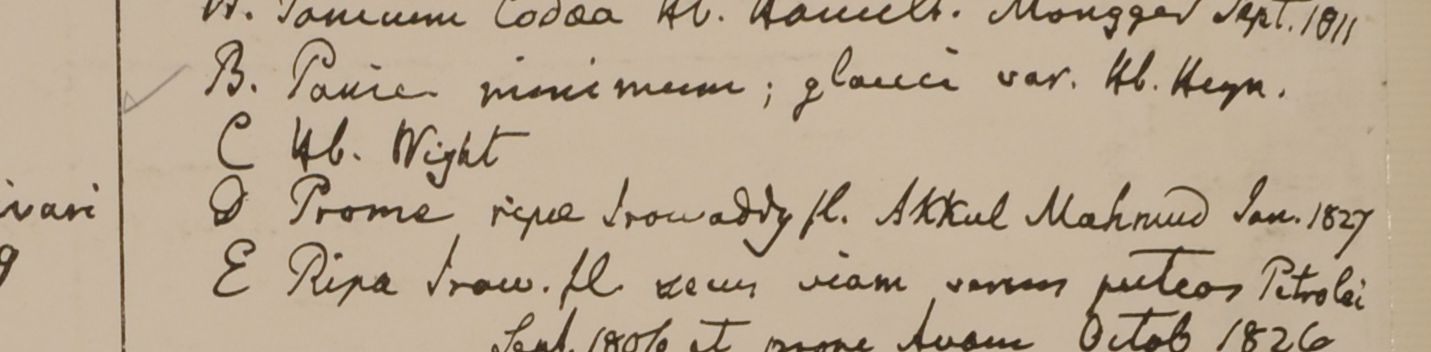 A. Panicum Codaa Hb. Hamilt. Mongger Sept. 1811
B. Panic. minimum; glauci var. Hb. Heyn.
C Hb. Wight
ivari D Prome ripa Irowaddy fl. Akkul Mahmud Jan. 1827
g E Ripa Irow. fl. secus viam versus puteos Petrolei
Sept. 1826 et prope Avam Octob 1826